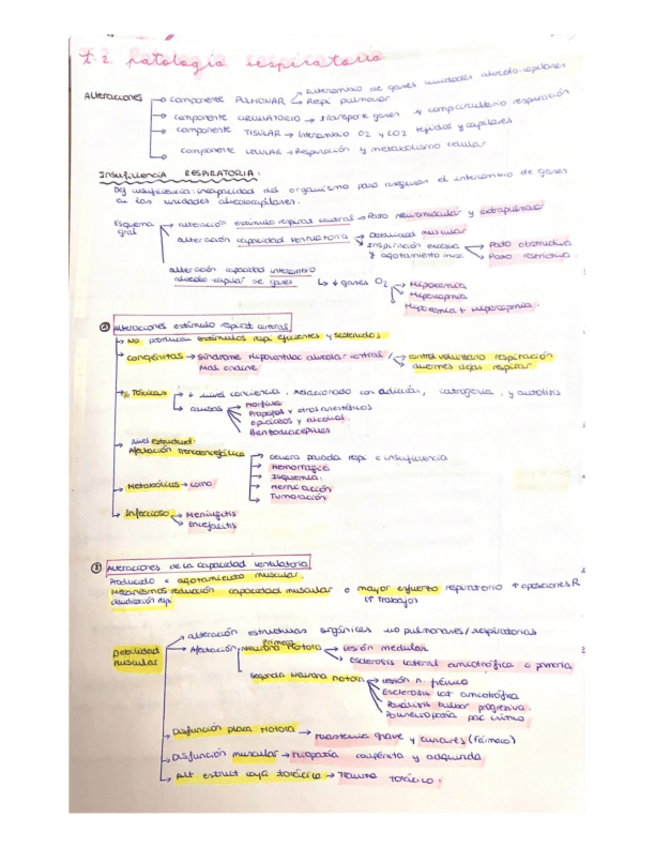 T.2. Patología respiratoria
Alteraciones → Componente PULMONAR → Intercambio de gases unidades alveolo-capilares
→ Respi pulmonar
→ Componente CIRCULATORIO → transporte gases → comp circulatorio respiración
→ Componente TISULAR → Intercambio O2 y CO2 tejidos y capilares.
→ Componente CELULAR → Respiración y metabolismo celular
INSUFICIENCIA RESPIRATORIA.
Def insuficiencia: incapacidad del organismo para asegurar el intercambio de gases
en las unidades alveolocapilares.
Esquema gral → alteración estímulo respirat central → Pato neuromuscular y extrapulmonar
alteración capacidad ventilatoria → Debilidad muscular
→ Inspiración excesiva y agotamiento musc → Pato obstructiva
→ Pato restrictiva.
alteración capacidad intercambio
alveolo-capilar de gases → ↓ gases O2 → Hipoxemia
→ Hipercapnia
→ Hipoxemia + Hipercapnia.
alteraciones estímulo respirat central
→ No producen estímulos respi eficientes y sostenidos
→ Congénitas → Síndrome Hipoventilac alveolar central / → control voluntario respiración
Mal ondine → duermes dejas respirar
→ Tóxicas → ↓ nivel conciencia, relacionado con adicción, iatrogenia, y autolisis
→ causas → Morfina
→ Propofol y otros anestésicos
→ Opiáceos y alcohol.
→ Benzodiacepinas
→ Nivel estructural:
Afectación troncoencefálica → Genera parada respi o insuficiencia
→ Hemorragia
→ Isquemia.
→ Herniación
→ Tumoración
→ Metabólicas → coma
→ Infeccioso → Meningitis
→ Encefalitis
Alteraciones de la capacidad ventilatoria
Producido x agotamiento muscular.
Mecanismos reducción capacidad muscular o mayor esfuerzo respiratorio ↑ oposiciones R
claudicación respi (↑ trabajo)
Debilidad muscular → alteración estructuras orgánicas no pulmonares/respiratorias
→ Afectación Primera Neurona Motora → Lesión medular
→ Esclerosis lateral amiotrófica o primaria
Segunda Neurona motora → Lesión n. frénico
→ Esclerosis lat amiotrófica
→ Parálisis bulbar progresiva.
→ Polineuropatía pac crítico
→ Disfunción placa Motora → Miastenia grave y curares (fármaco)
→ Disfunción muscular → Miopatía congénita y adquirida
→ Alt estruct caja torácica → Trauma torácico.